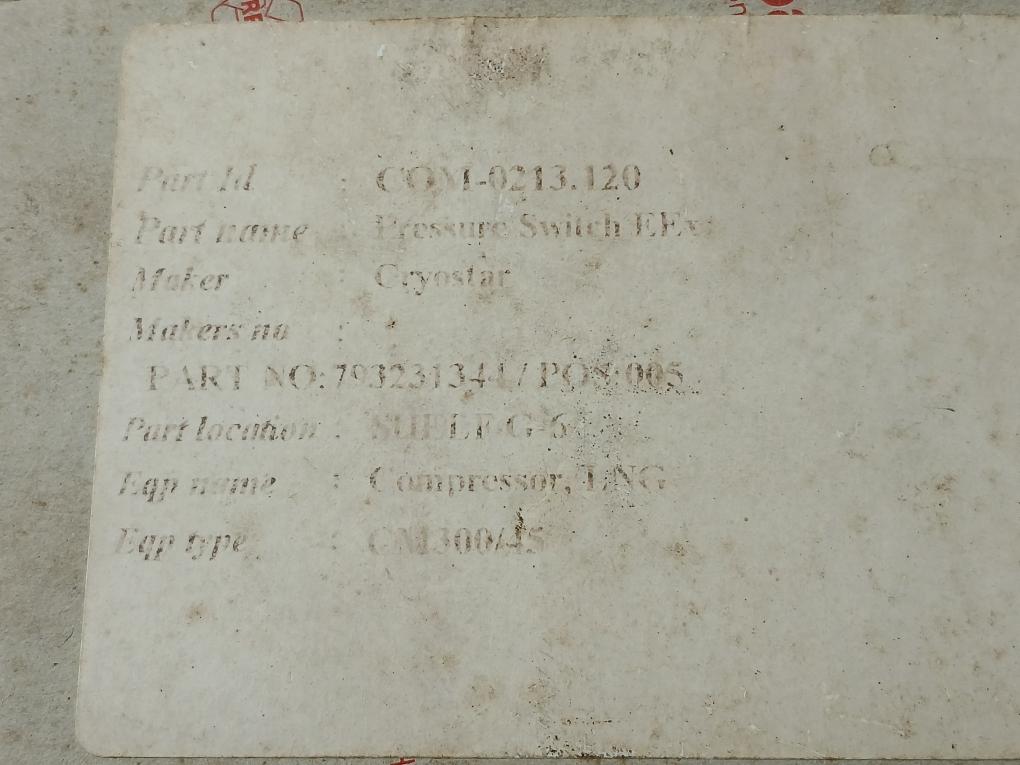 Part Id : COM-0213.120
Part name : Pressure Switch EEx
Maker : Cryostar
Makers no :
PART NO: 793231344 / POS:005
Part location : SHELF-G-6
Eqp name : Compressor, LNG
Eqp type : CM300/45